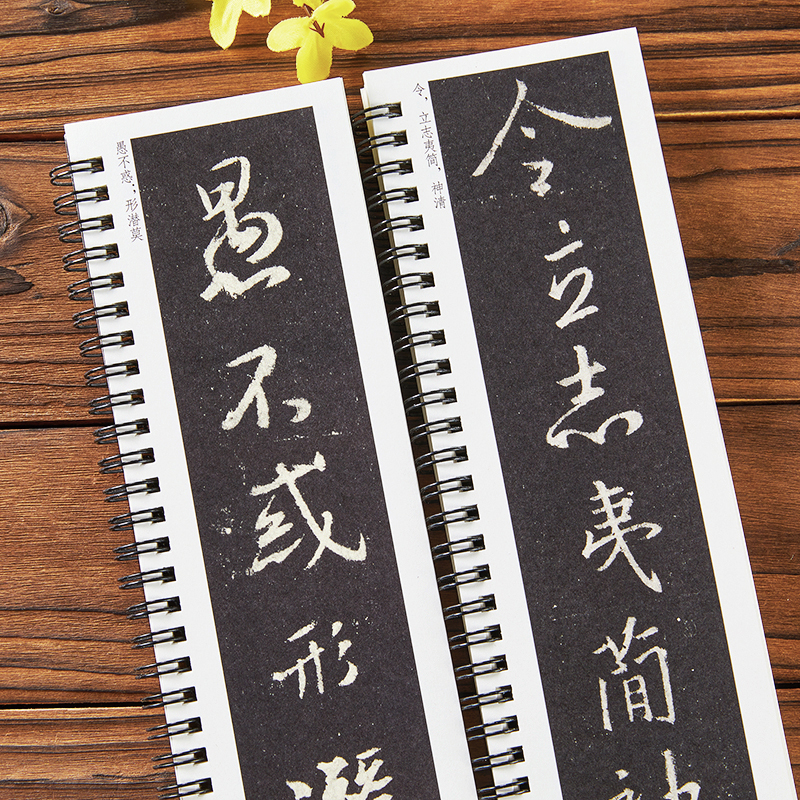 愚不惑；形潜莫
愚不或形潛
令，立志夷简，神清
令立志夷簡神